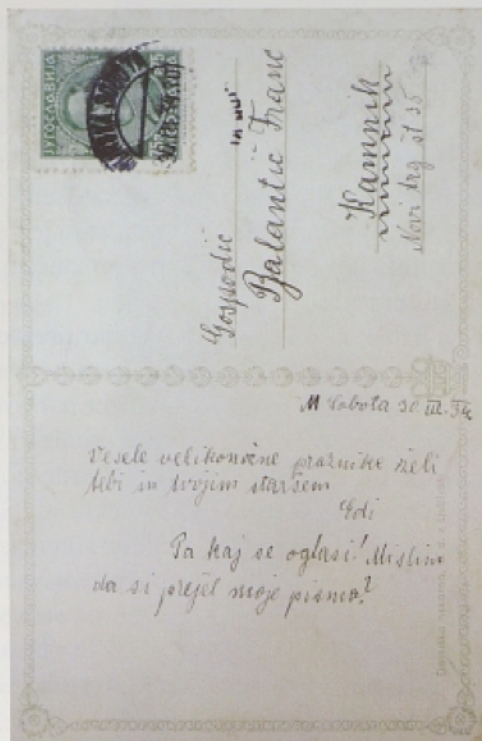 ЈУГОСЛАВИЈА
Gospodič
Balantič Franc
Kamnik
Novi trg št 35
M Sobota 30 III. 34
Vesele velikonočne praznike želi
tebi in tvojim staršem
Edi
Pa kaj se oglasi! Mislim
da si prejel moje pismo?